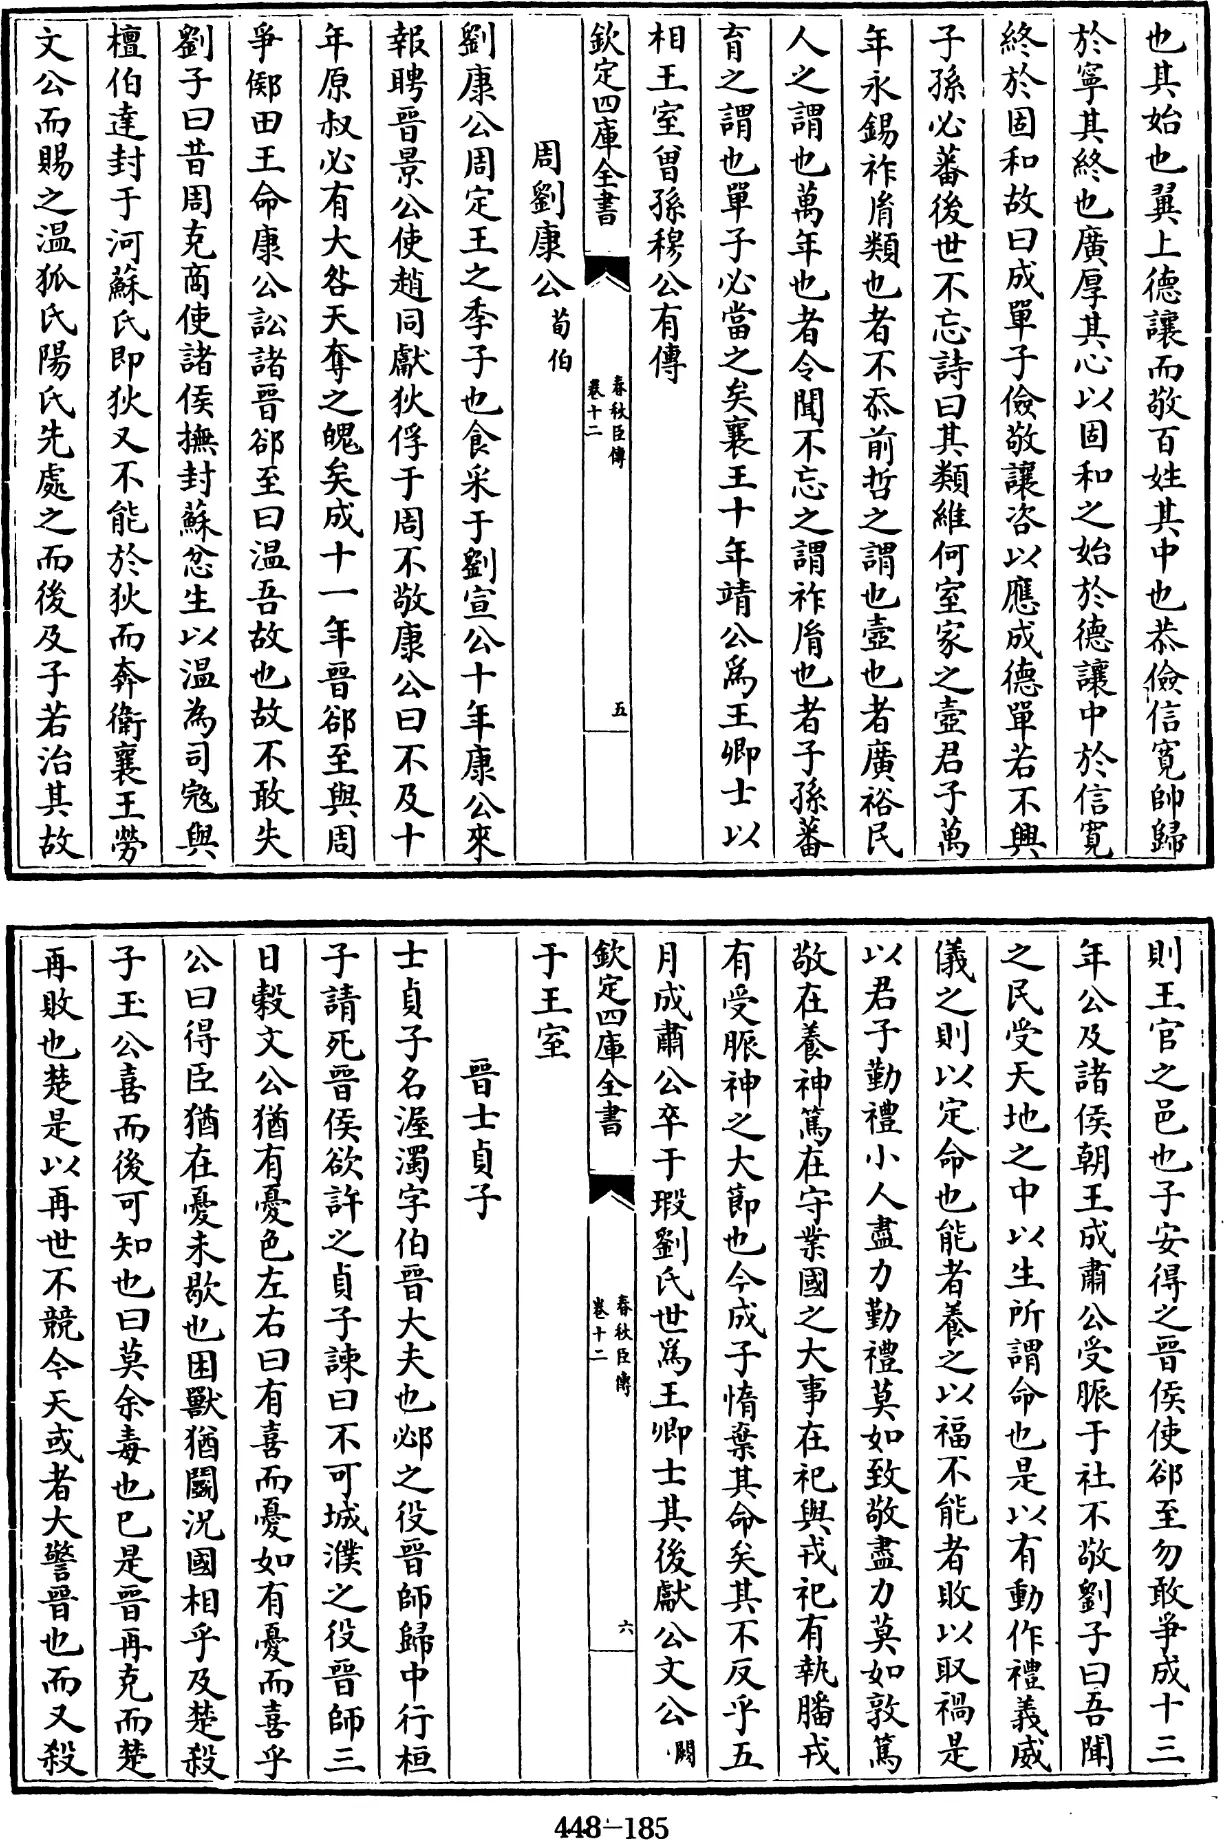 也其始也翼上德讓而敬百姓其中也恭儉信寛帥歸
於寧其終也廣厚其心以固和之始於德讓中於信寛
終於固和故曰成單子儉敬讓咨以應成德單若不興
子孫必蕃後世不忘詩曰其類維何室家之壼君子萬
年永錫祚胤類也者不忝前哲之謂也壼也者廣裕民
人之謂也萬年也者令聞不忘之謂祚胤也者子孫蕃
育之謂也單子必當之矣襄王十年靖公爲王卿士以
相王室曾孫穆公有傳
欽定四庫全書
春秋臣傳
卷十二
五
周劉康公荀伯
劉康公周定王之季子也食采于劉宣公十年康公來
報聘晉景公使趙同獻狄俘于周不敬康公曰不及十
年原叔必有大咎天奪之魄矣成十一年晉郤至與周
爭鄇田王命康公訟諸晉郤至曰温吾故也故不敢失
劉子曰昔周克商使諸侯撫封蘇忿生以温為司寇與
檀伯達封于河蘇氏即狄又不能於狄而奔衛襄王勞
文公而賜之温狐氏陽氏先處之而後及子若治其故
則王官之邑也子安得之晉侯使郤至勿敢爭成十三
年公及諸侯朝王成肅公受脤于社不敬劉子曰吾聞
之民受天地之中以生所謂命也是以有動作禮義威
儀之則以定命也能者養之以福不能者敗以取禍是
以君子勤禮小人盡力勤禮莫如致敬盡力莫如敦篤
敬在養神篤在守業國之大事在祀與戎祀有執膰戎
有受脤神之大節也今成子惰棄其命矣其不反乎五
月成肅公卒于瑕劉氏世爲王卿士其後獻公文公闕
欽定四庫全書
春秋臣傳
卷十二
六
于王室
晉士貞子
士貞子名渥濁字伯晉大夫也邲之役晉師歸中行桓
子請死晉侯欲許之貞子諫曰不可城濮之役晉師三
日穀文公猶有憂色左右曰有喜而憂如有憂而喜乎
公曰得臣猶在憂未歇也困獸猶鬬況國相乎及楚殺
子玉公喜而後可知也曰莫余毒也已是晉再克而楚
再敗也楚是以再世不競今天或者大警晉也而又殺
448-185